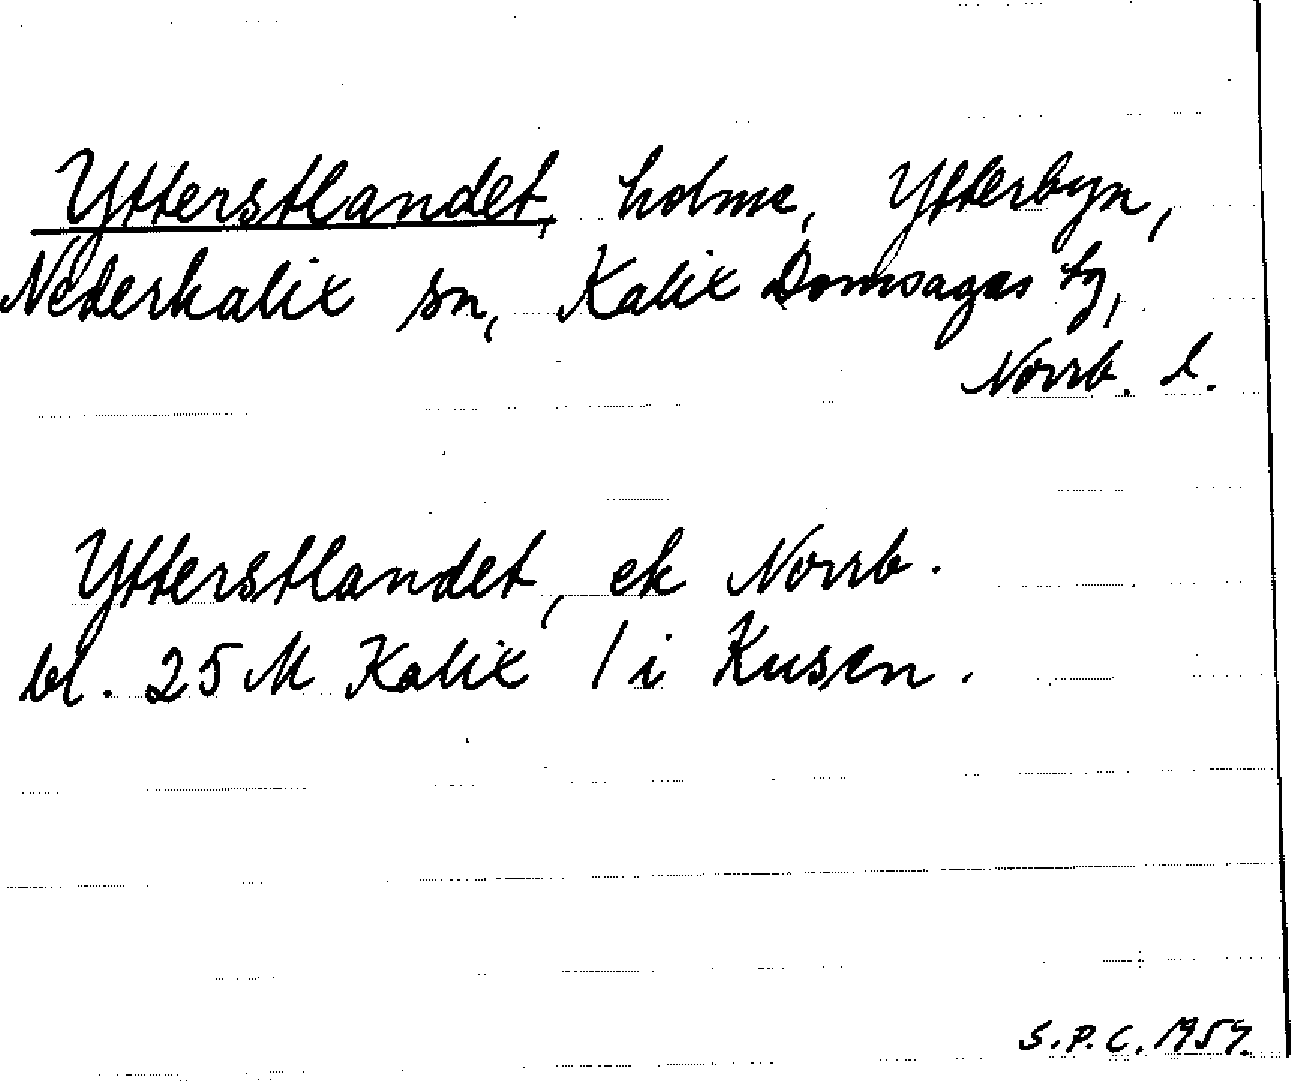 Ytterstlandet, holme, Ytterbyn,
Nederkalix sn, Kalix Domsagas tg,
Norrb. l.
Ytterstlandet, ek Norrb.
bl. 25 M Kalix / i Kusen.
S.P.C. 1957.